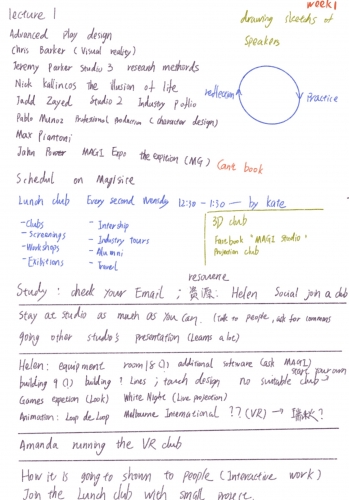 week1
lecture 1
drawing sketchs of
speakers
Advanced Play design
Chris Barker (Visual reality)
Jeremy Parker studio 3 research methods
Nick Kallincos the illusion of life
Tadd Zayed Studio 2 Industry
reflection
Practice
Pablo Munoz Profesional (character design)
Max Piantoni
John Power MAGI Expo the (MG)
Cant book
Schedul on Magisite
Lunch club Every second 12:30 - 1:30 — by kate
- Clubs
- Screenings
- Workshops
- Exibitions
- Intership
- Industry tours
- Alumni
- Travel
3D club
Facebook "MAGI Studio"
Projection club
resource
Study : check your Email ; 资源: Helen Social join a club
Stay at studio as much as you can. (talk to people, ask for
going other studio's presentation (Learns a lot)
Helen: equipment room 18 additional software (ask MAGI)
start your own
building 9 building ? ; touch design no suitable club
Games (Look) White Night (Live projection)
Animation: Loop de Loop Melbourne International ?? (VR) →
Amanda running the VR club
How it is going to shown to people (Interactive work)
Join the Lunch club with small project.